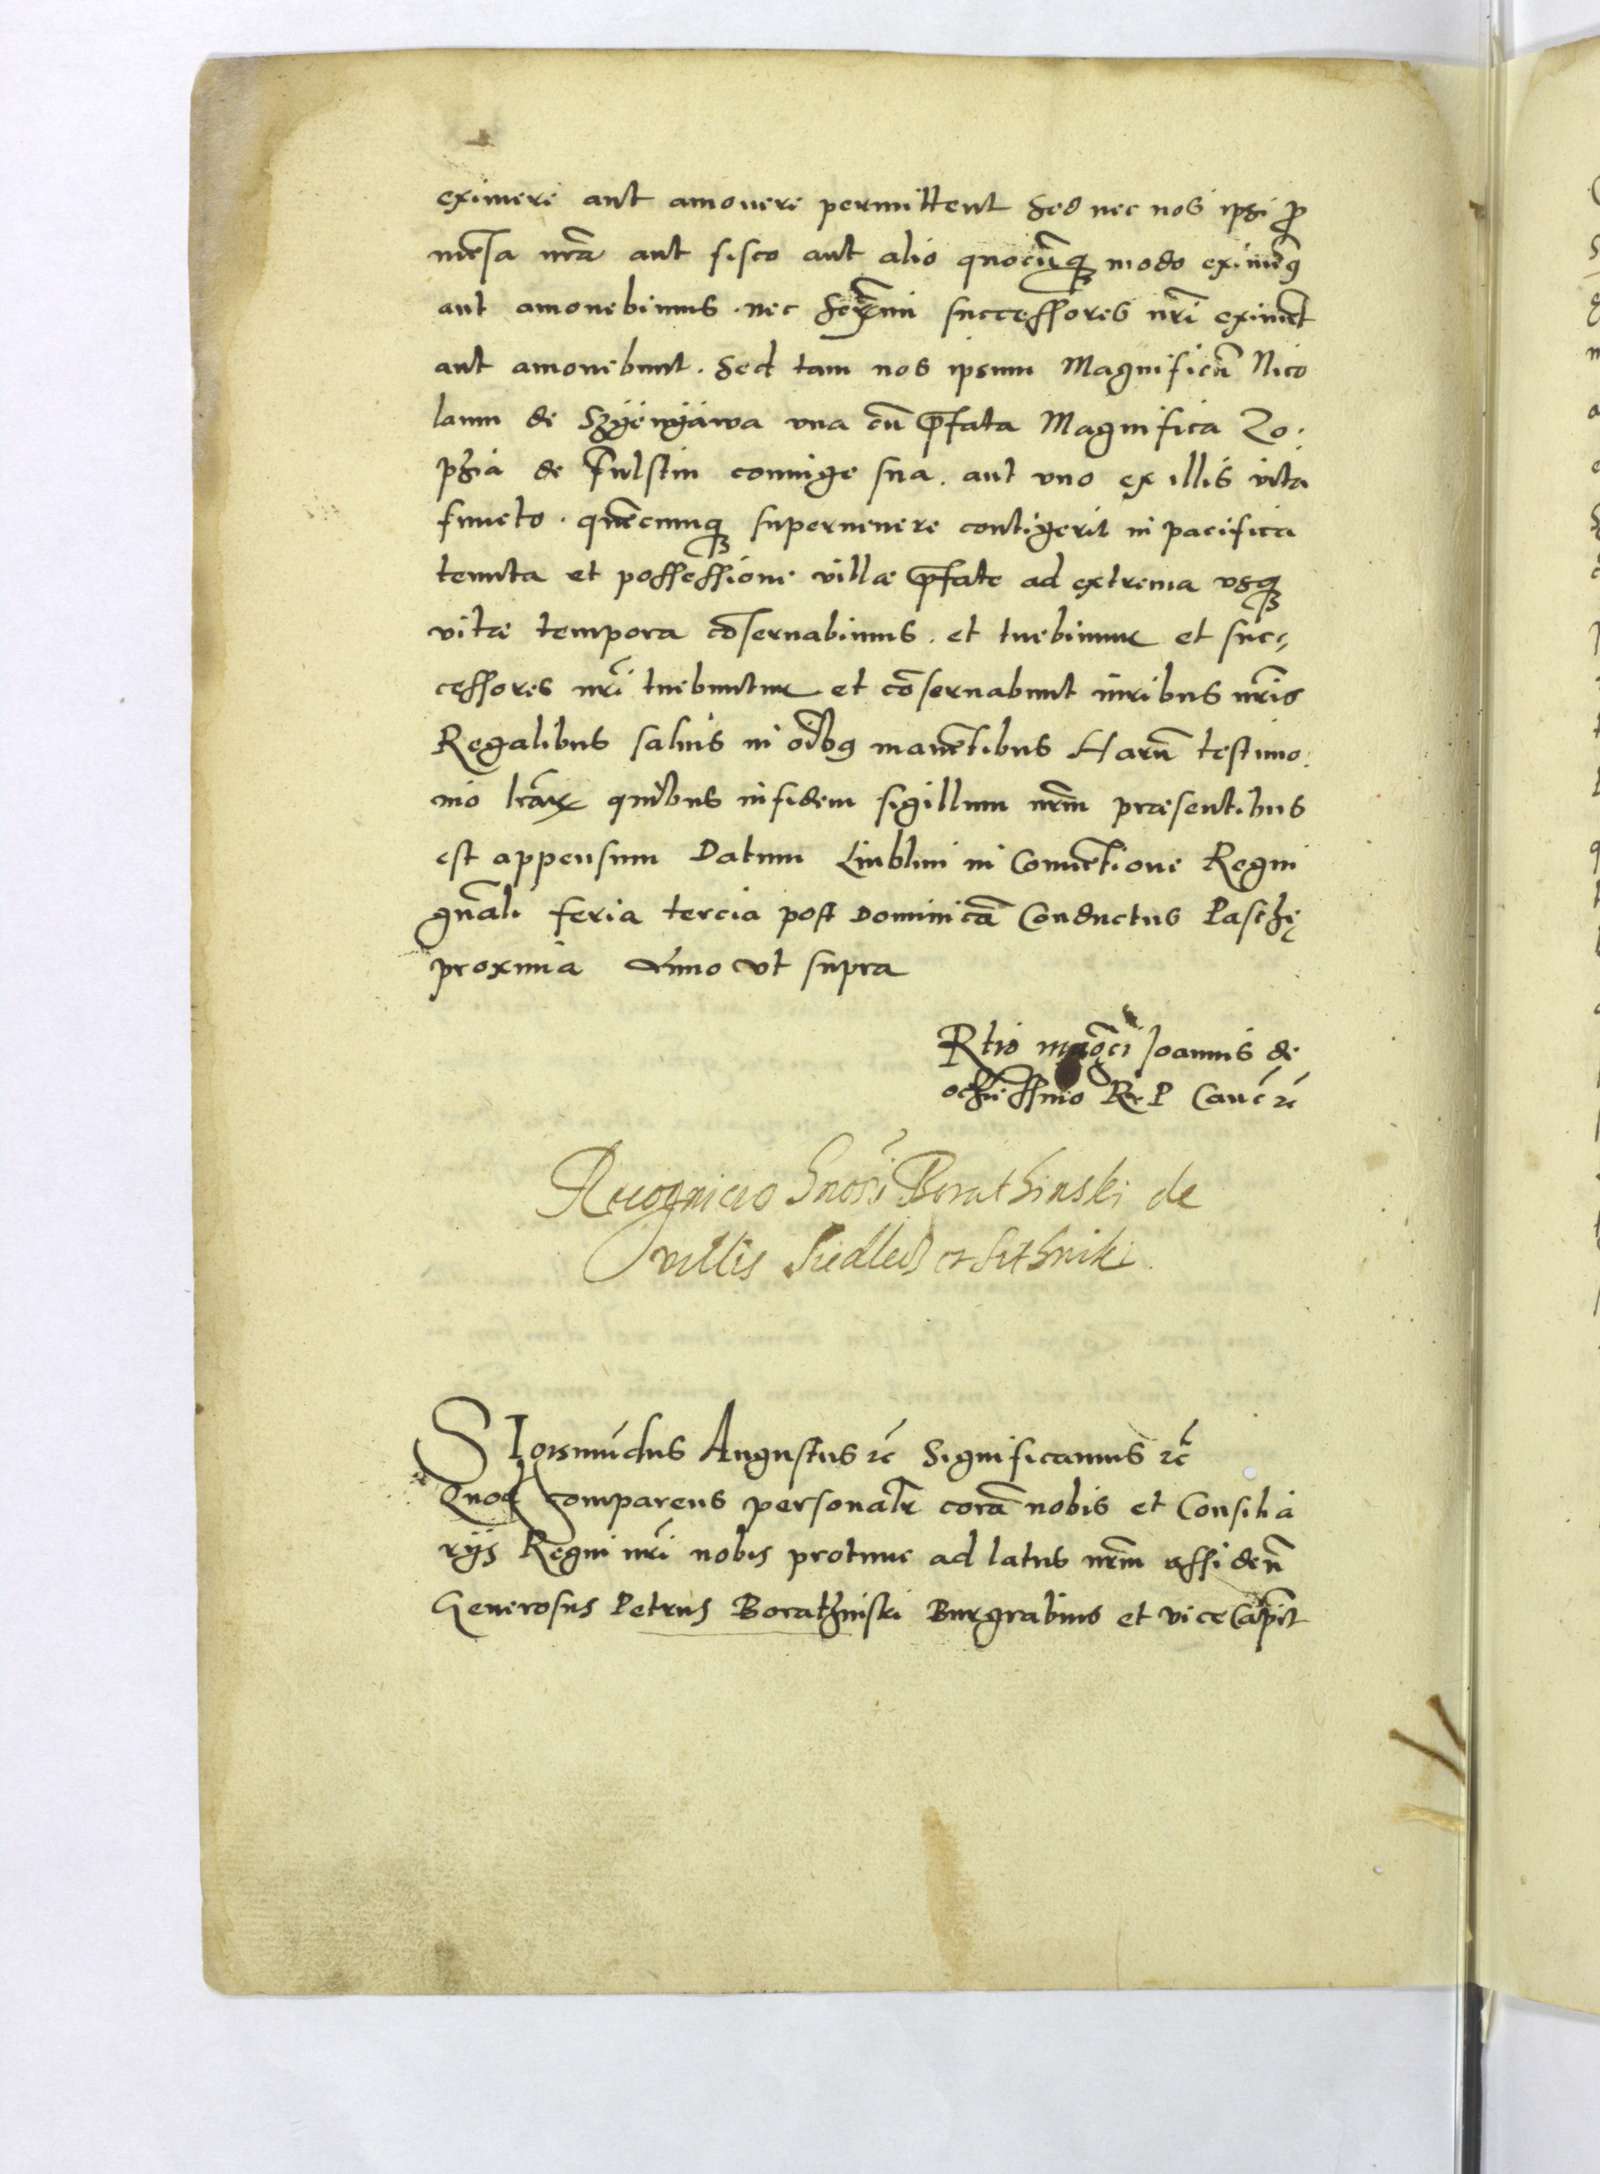 eximere aut amouere permittent Sed nec nos ipsi ꝓ
mẽsa nr̃a aut fisco aut alio quocũqꝫ modo eximemꝰ
aut amouebimus. nec Ser͞mi successores nr̃i eximẽt
aut amouebunt. Sed tam nos ipsum Magnificũ Nico
laum de Szyeniawa vna cũ p̃fata Magnifica Zo.
phia de Fulstin coniuge sua. aut vno ex illis vita
functo. quẽcumqꝫ superuenere contigerit in pacifica
tenuta et possessione villæ p̃fate ad extrema vsqꝫ
vitæ tempora cõseruabimus. et tuebimur et suc-
cessores nr̃i tuebuntur et cõseruabunt iuribus nr̃is
Regalibus saluis in oĩbꝰ manẽtibus Harũ testimo.
nio lr̃arꝝ quibus in fidem sigillum nr̃m præsentibus
est appensum Datum Liublini in Conuẽtione Regni
gñali feria tercia post Dominicã Conductus Paschę
proxima Anno vt supra
Rtio mag̃ci Joannis de
ocziessino R. P Canc̃ ⁊c̃
Recognicio Gnosi Borathinski de
villis Siedlecz et Sithniki
SIGismũdus Augustus ⁊c̃ Significamus ⁊c̃
Quod comparens personalr̃ corã nobis et Consilia
rijs Regni nr̃i nobis protunc ad latus nr̃m assidẽn̄
Generosus Petrus Borathinski Burgrabius et viceCapit̃